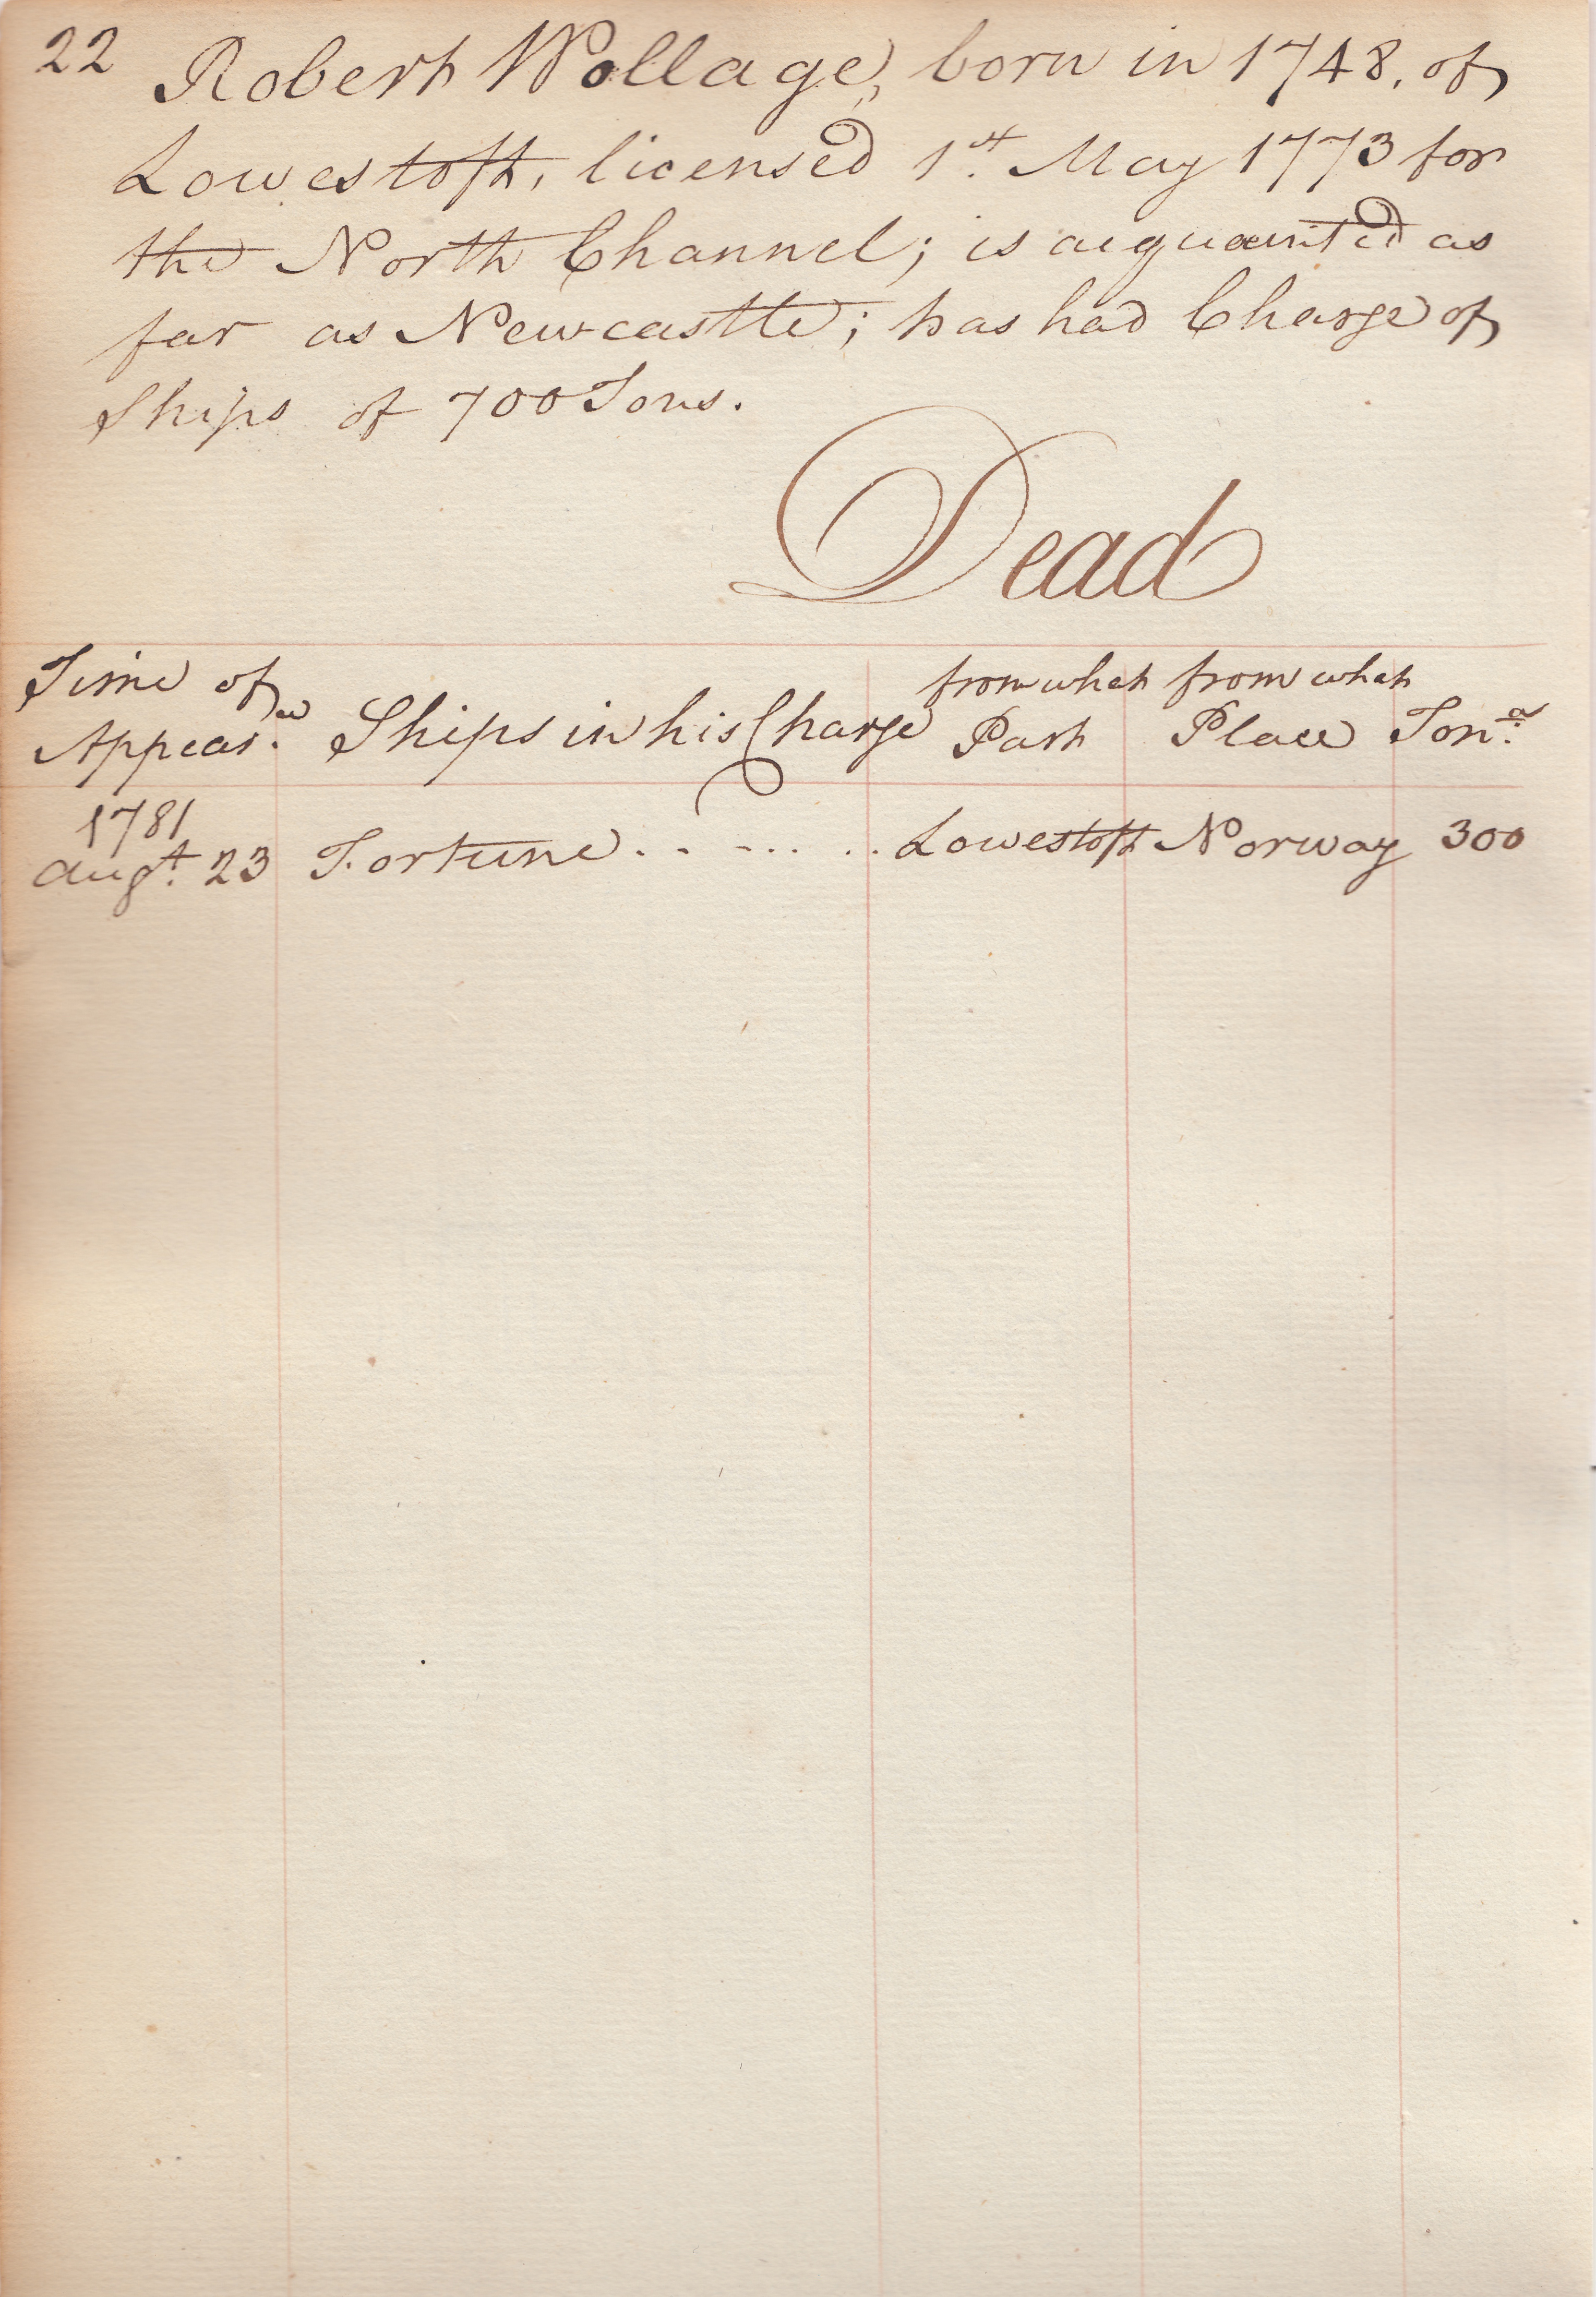 22 Robert Wollage, born in 1748, of
Lowestoft, licensed 1st. May 1773 for
the North Channel; is acquainted as
far as Newcastle; has had Charge of
Ships of 700 Tons.
Dead
Time of Appear.ce Ships in his Charge from what Part from what Place Ton.a
1781
Augt. 23 Fortune . . . . . . . Lowestoft Norway 300